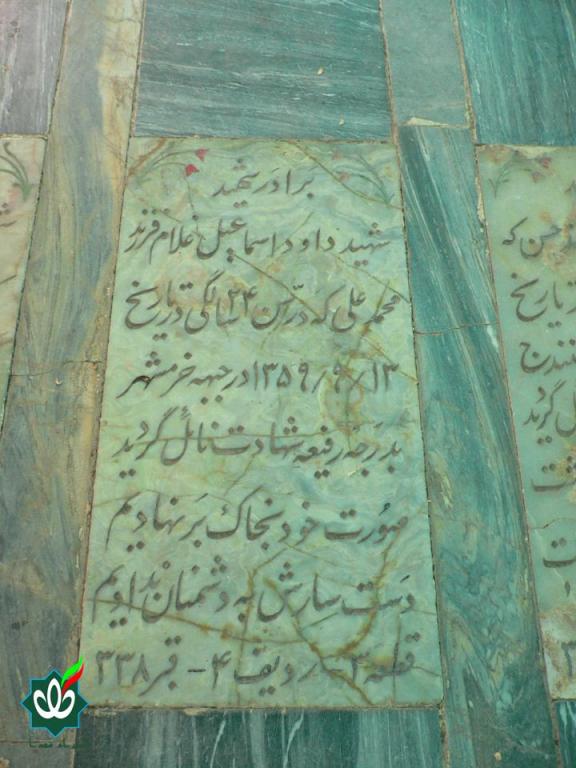 برادر شهید
شهید داود اسماعیل غلام فرزند
محمد علی که در سن ۲۴ سالگی در تاریخ
۱۳۵۹/۹/۱۳ در جبهه خرمشهر
بدرجه رفیعه شهادت نائل گردید
صورت خود بخاک بر نهادیم
دست سازش به دشمنان ندادیم
قطعه ۳- ردیف ۴- قبر ۳۳۸
حسن که
تاریخ
گردید